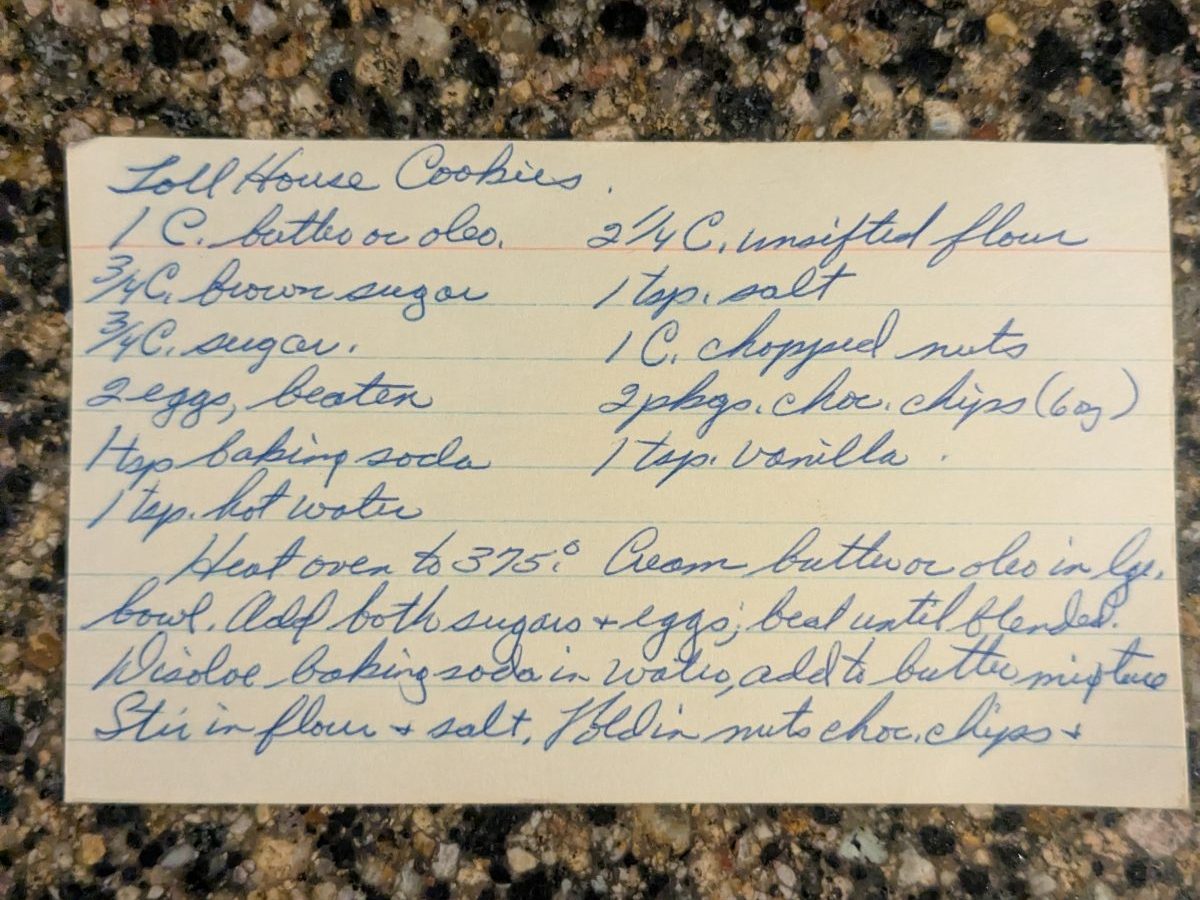 Toll House Cookies.
1 C. butter or oleo. 2 1/4 C. unsifted flour
3/4 C. brown sugar 1 tsp. salt
3/4 C. sugar. 1 C. chopped nuts
2 eggs, beaten 2 pkgs. choc. chips (6 oz)
1 tsp baking soda 1 tsp. vanilla.
1 tsp. hot water
Heat oven to 375.° Cream butter or oleo in lge.
bowl. Add both sugars + eggs; beat until blended.
Disolve baking soda in water, add to butter mixture
Stir in flour + salt. Fold in nuts choc. chips +